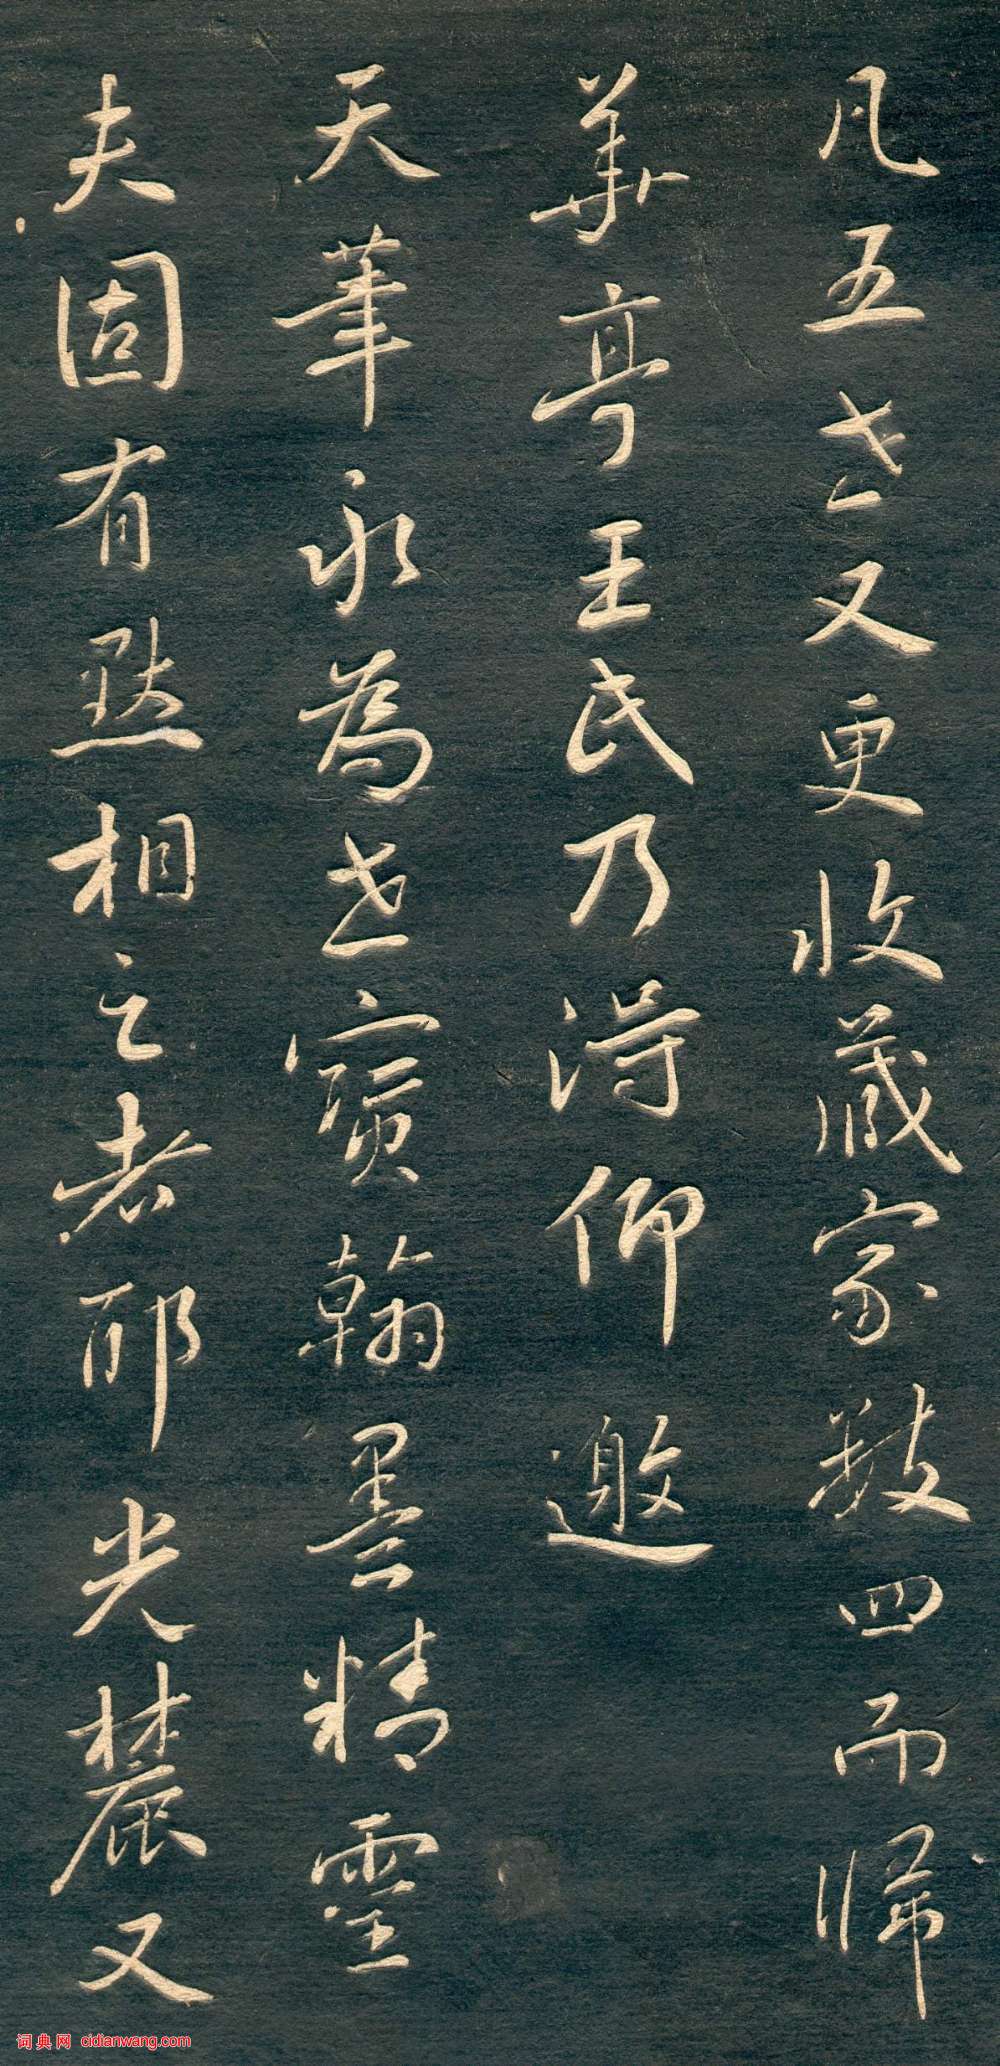 凡五世又更收藏家數四而歸
華亭王氏乃得仰邀
天筆永為世寶翰墨精靈
夫固有默相之者耶光麓又
词典网 cidianwang.com